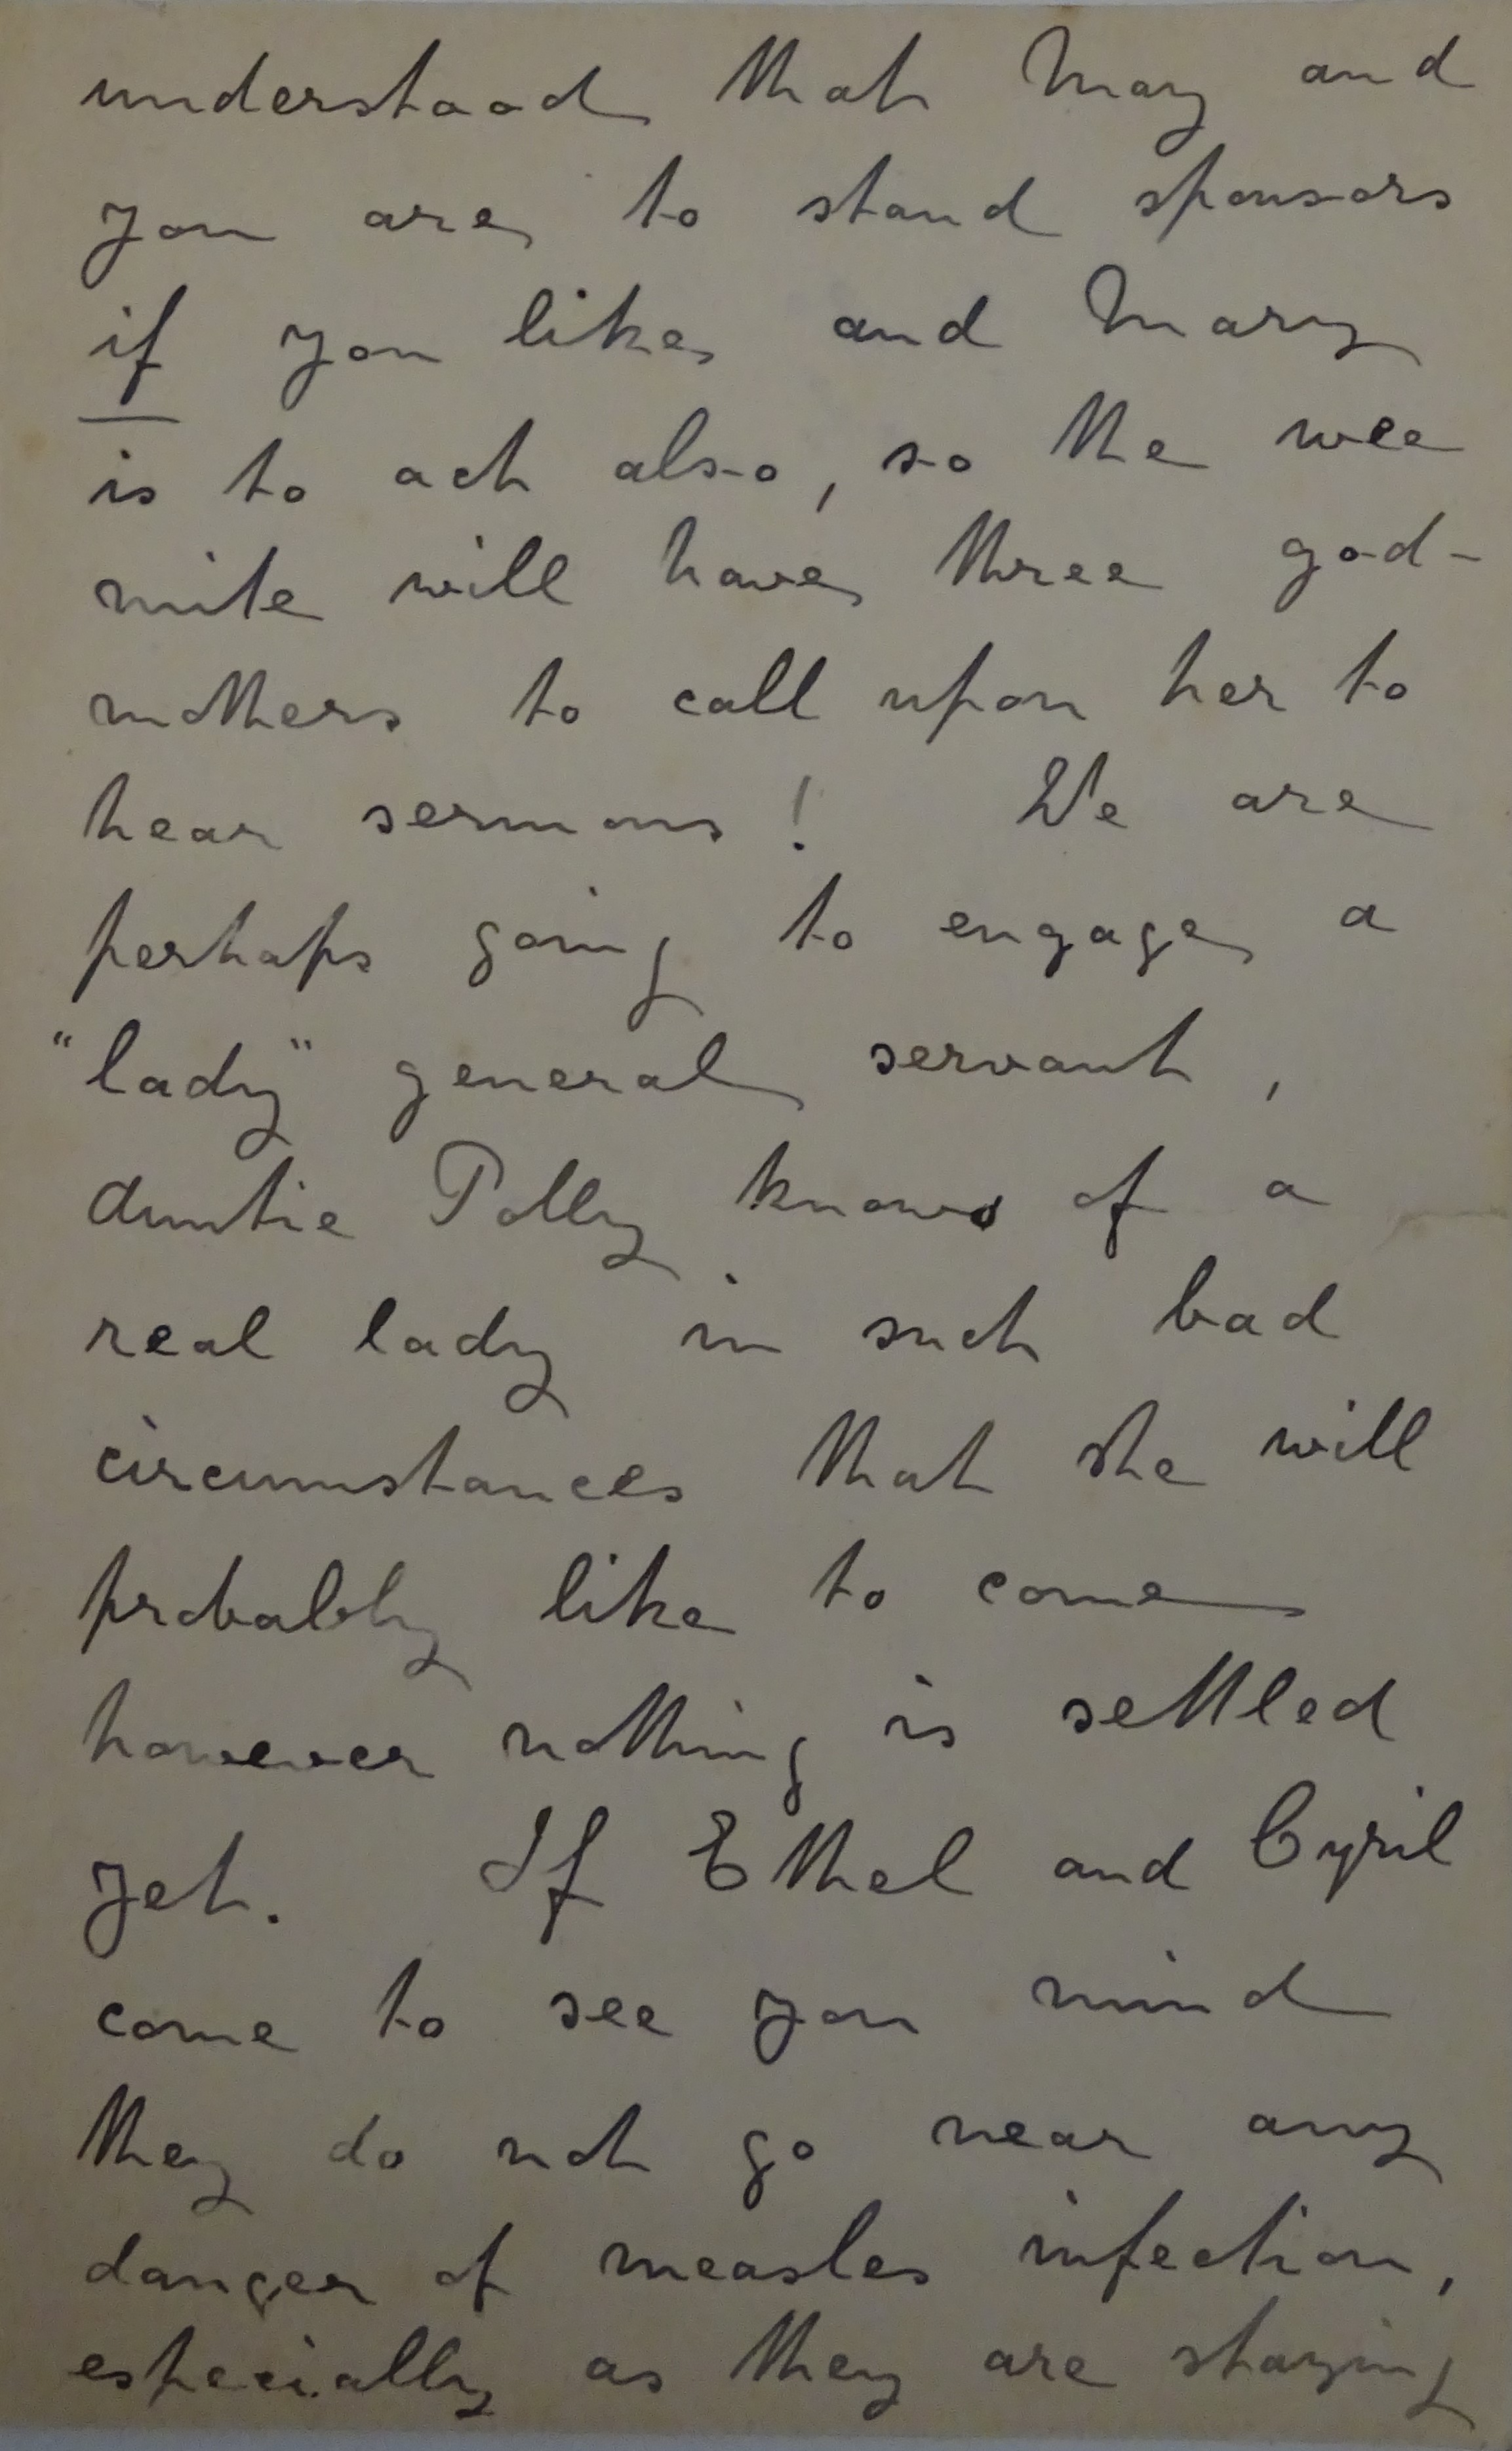 understood that May and
you are to stand sponsors
if you like and Mary
is to act also, so the wee
mite will have three god-
mothers to call upon her to
hear sermons! We are
perhaps going to engage a
"lady" general servant,
Auntie Polly knows of a
real lady in such bad
circumstances that she will
probably like to come
however nothing is settled
yet. If Ethel and Cyril
come to see you mind
they do not go near any
danger of measles infection,
especially as they are staying